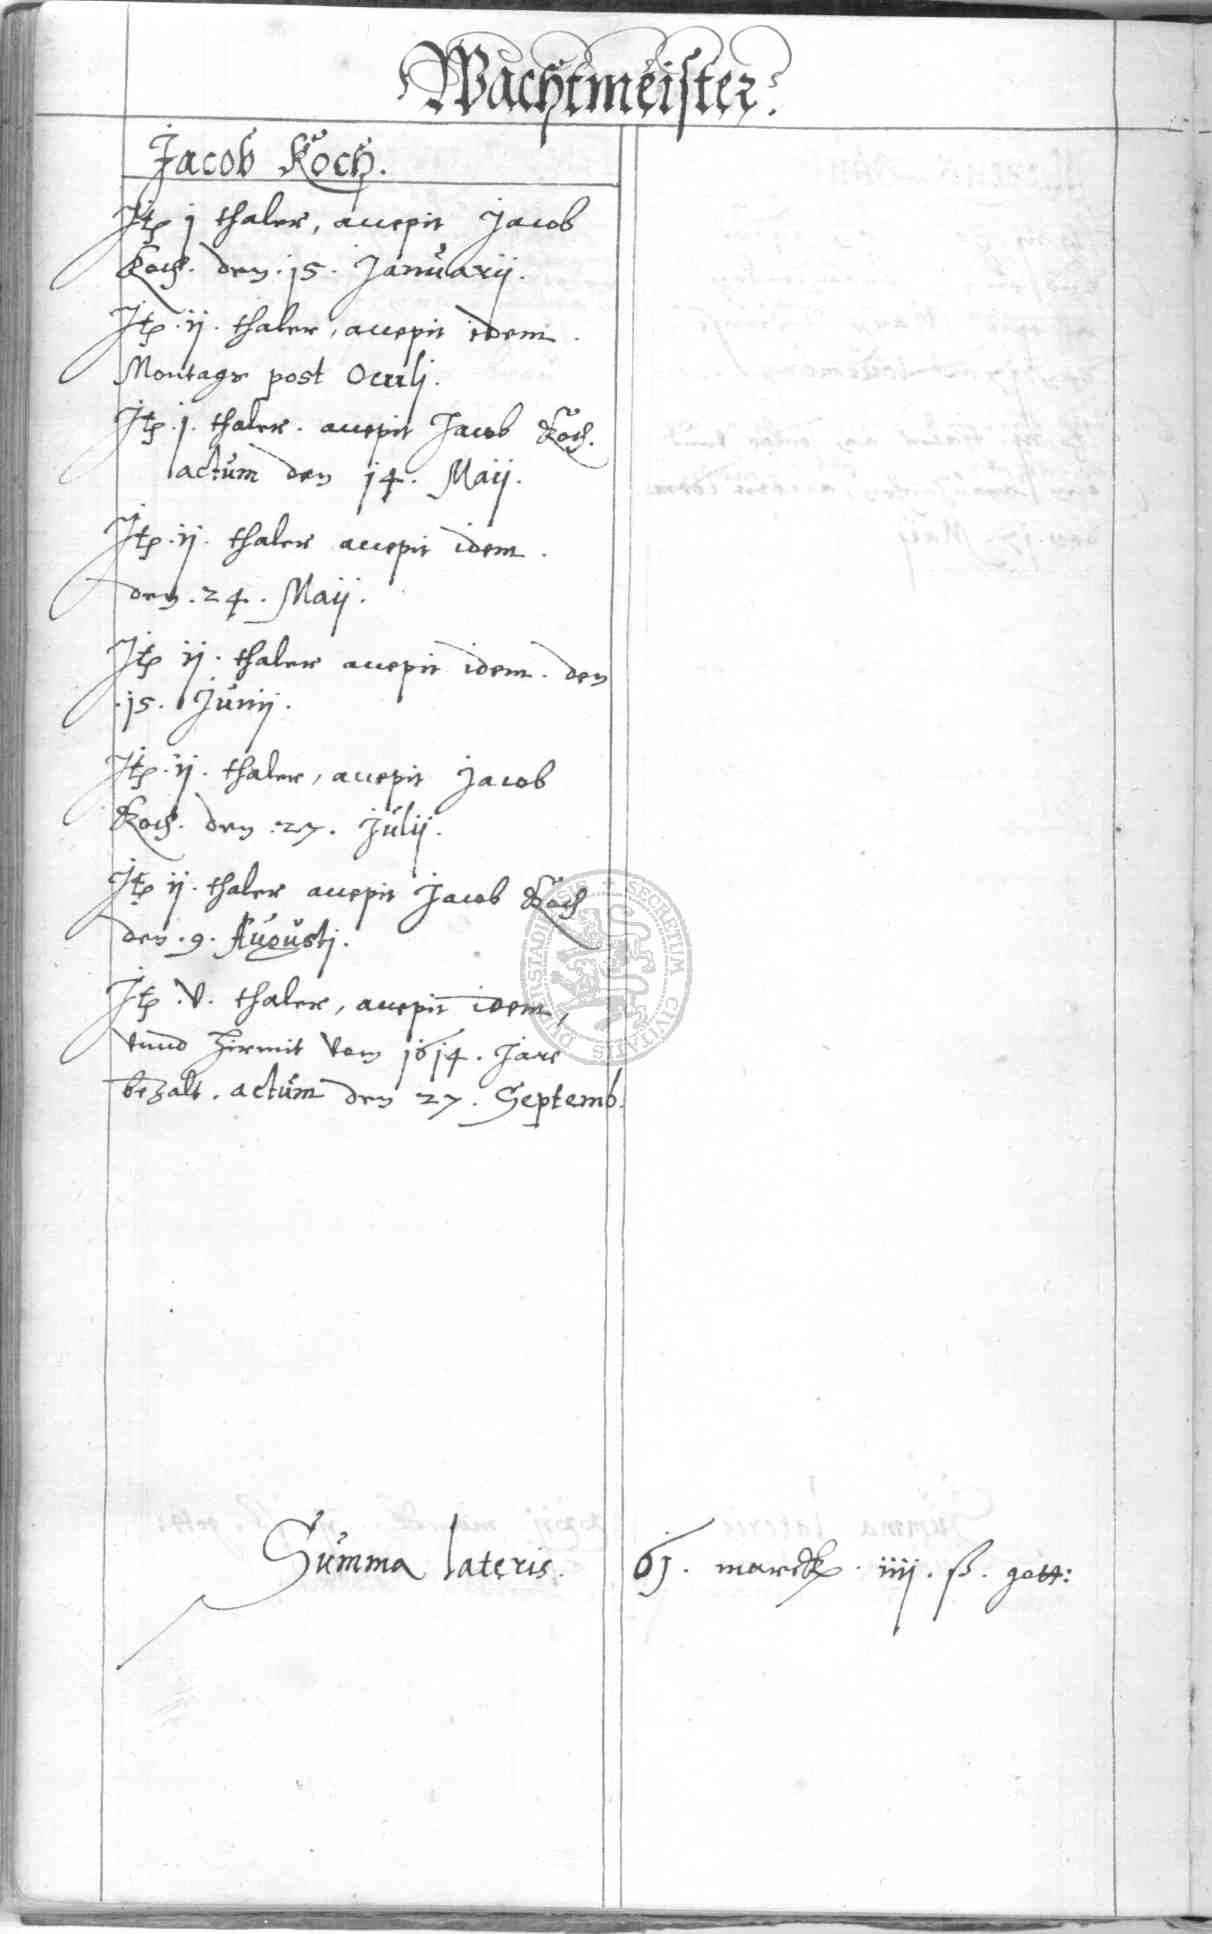 Wachtmeister.
Jacob Koch.
Itp j thaler, accepit Jacob
Koch. den .15. Januarij.
Itp .ij. thaler, accepit idem.
Montags post Oculj.
Itp .j. thaler. accepit Jacob Koch.
actum den 14. Maij.
Itp .ij. thaler accepit idem.
den .24. Maij.
Itp ij. thaler accepit idem. den
.15. Junij.
Itp .ij. thaler, accepit Jacob
Koch. den .27. Julij.
Itp ij. thaler accepit Jacob Koch
den .9. Augustj.
Itp .v. thaler, accepit idem,
vnnd hirmit vom 1614. Jare
bezalt. actum den 27. Septemb.
SECRETUM CIVITATIS DUDERSTADIENSIS
Summa lateris. 61. marck. iiij. ß. gott: